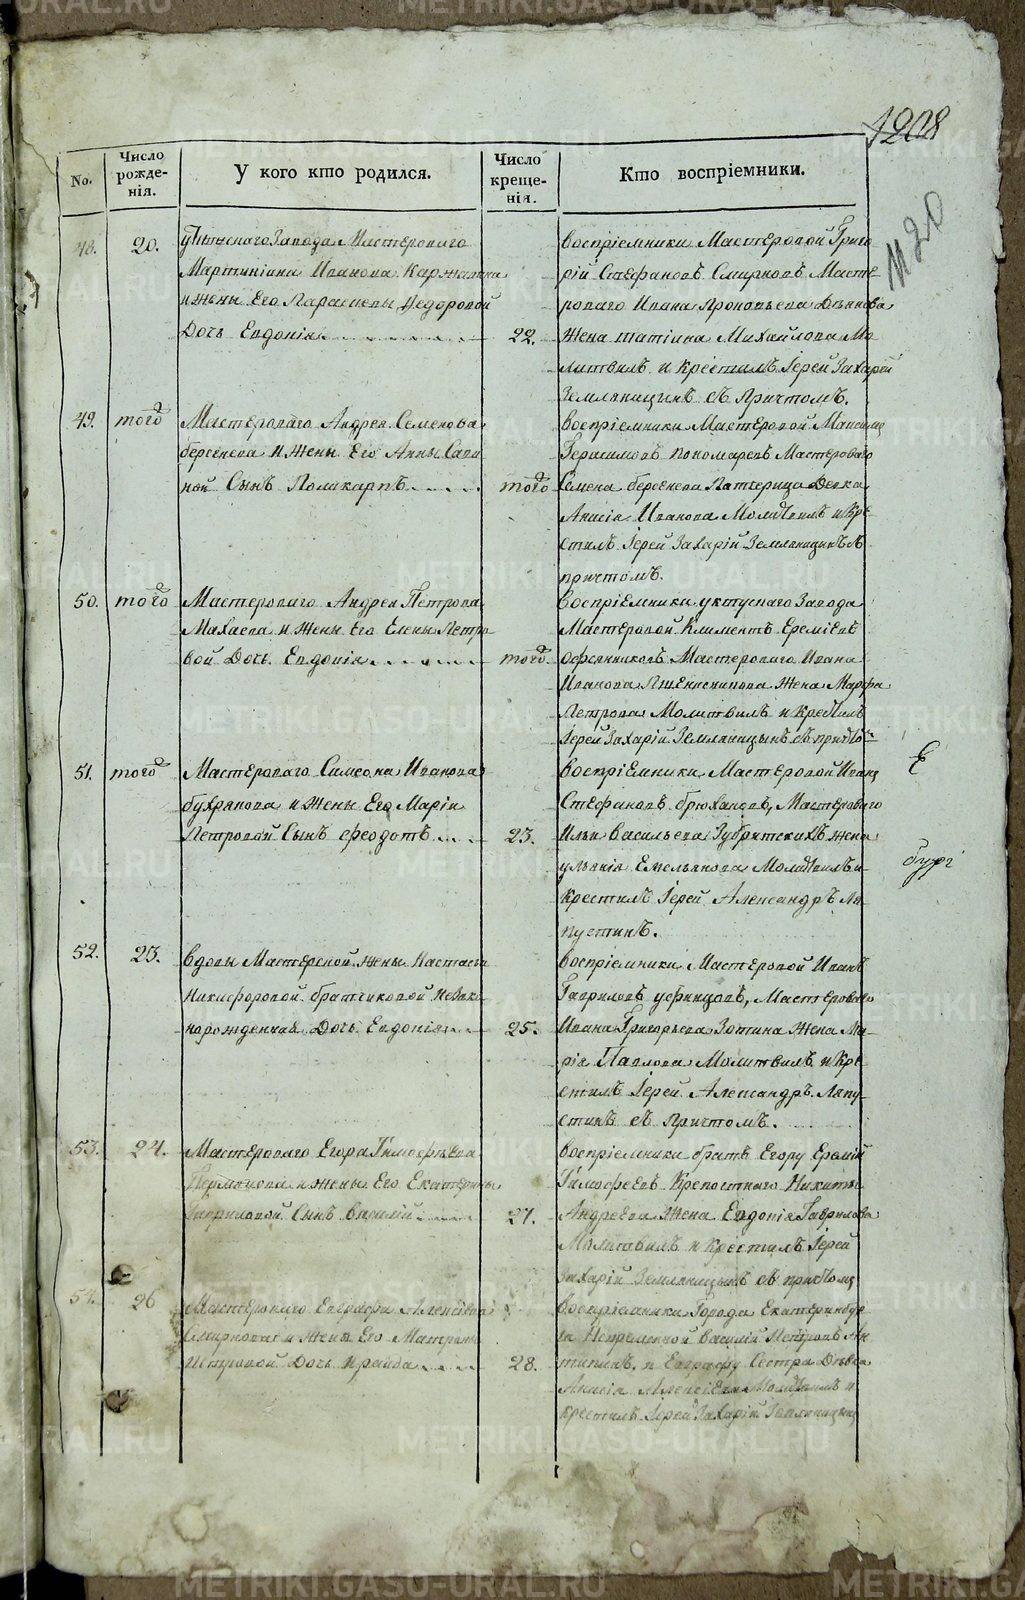 1208
М 20
No.
Число рожде-нія.
У кого кто родился.
Число креще-нія.
Кто воспріемники.
48.
20.
уктуского Завода Мастероваго
Мартиніана Иванова
и жены Его Параскевы Федоровой
Дочь Евдокія
22.
воспріемники Мастеровой Григо
рій Стефановъ Смирновъ Масте-
роваго Ивана Прокопьева
жена татіана Михайлова Мо
литвилъ и крестилъ Іерей Захарій
Земляницинъ съ Причтомъ.
49.
того
Мастероваго Андрея Семенова
берсенева и жены Его Анны Сави
ной Сынъ Поликарпъ
того
воспріемники Мастеровой Максимъ
Герасимовъ пономаревъ Мастероваго
Семена берсенева Девка
Анисія Иванова Молитвилъ и Кре
стилъ Іерей Захарій Земляницинъ съ
причтомъ.
50.
того
Мастероваго Андрея Петрова
Махаева и жены Его Елены Петро
вой Дочь Евдокія
того.
воспріемники уктускаго Завода
Мастеровой Климентъ Еремѣевъ
Мастероваго Ивана
Иванова Пшеничникова жена Марфа
Петрова Молитвилъ и Крестилъ
Іерей Захарій Земляницынъ съ причто
51.
того
Мастероваго Симеона Иванова
бухрякова и жены Его Маріи
Петровой Сынъ Феодотъ
23.
воспріемники Мастеровой Иванъ
Стефановъ брюхановъ, Мастероваго
Ильи Васильева Зубритскихъ жена
ульянія Емельянова Молитвилъ и
крестилъ Іерей Александръ Ля-
пустинъ.
Е
бург
52.
23.
вдовы Мастерской жены Настасьи
Никифоровой братчиковой незако
норожденная Дочь Евдокія
25.
воспріемники Мастеровой Иванъ
Гавриловъ уфинцовъ, Мастероваго
Ивана Григорьева Зотина жена Ма-
рія Павлова Молитвилъ и Кре
стилъ Іерей Александръ Ляпу-
стинъ съ Причтомъ.
53.
24.
Мастероваго Егора Тимофѣева
и жены Его Екатерины
Гавриловой Сынъ Василій
27.
воспріемники братъ Егору Еремій
Тимофеевъ Крепостнаго Никиты
Андреева жена Евдокія Гаврилова
Молитвилъ и крестилъ Іерей
Захарій Земляницынъ съ причтомъ
54.
26
Мастероваго Евграфа Алексѣева
Смирнова и жены Его Матрены
Петровой Дочь Ираида
28.
воспріемники Города Екатеринбур
га Непременной Василій Петровъ Ан
типинъ, и Евграфу Сестра Девка
Анисія Алексѣева Молитвилъ и
крестилъ Іерей Захарій Земляницынъ